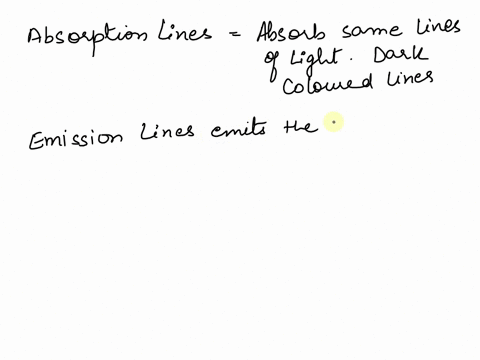 Absorption Lines = Absorb same lines
of Light. Dark
Coloured lines
Emission Lines emits the